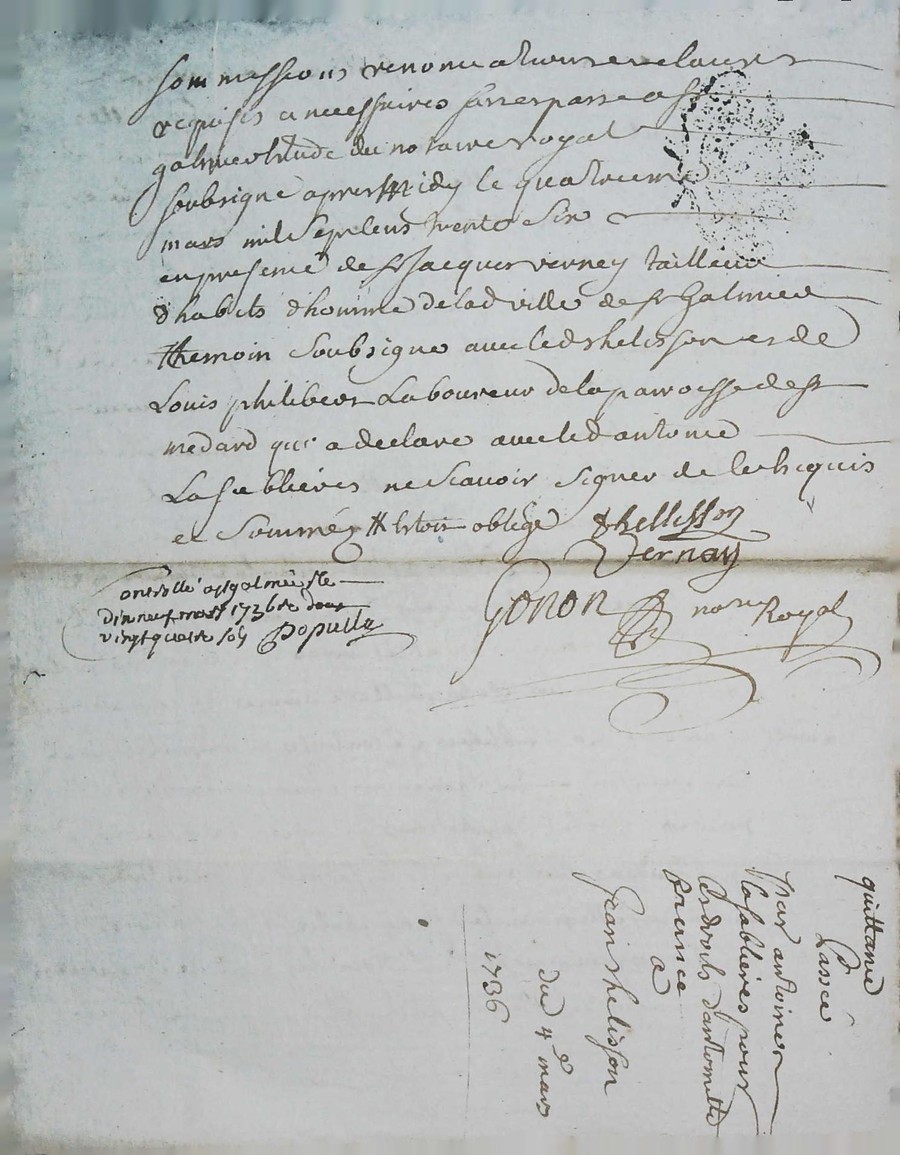 sommessions renonciations et clauses
requises et necessaires fait et passé a st
galmier etude du notaire royal
soubsigné apres midy le quatrieme
mars mil sept cens trente six
en presence de sr Jacques verney tailleur
d'habits d'homme de lad ville de st Galmier
themoin soubsigné avec led thelisson et de
Louis philibert Laboureur de la paroisse de st
medard qui a declaré avec led antoine
Lafabliéres ne scavoir signer de ce enquis
et sommés obligé thellisson
Vernay
Gonon nore Royal
Controllé a st galmier le
dix neuf mars 1736
vingt quatre sols Populle
quittance
Passé
par antoine
Lafablieres pour
les droits d'antoinette
a
jean thelisson
du 4e mars
1736